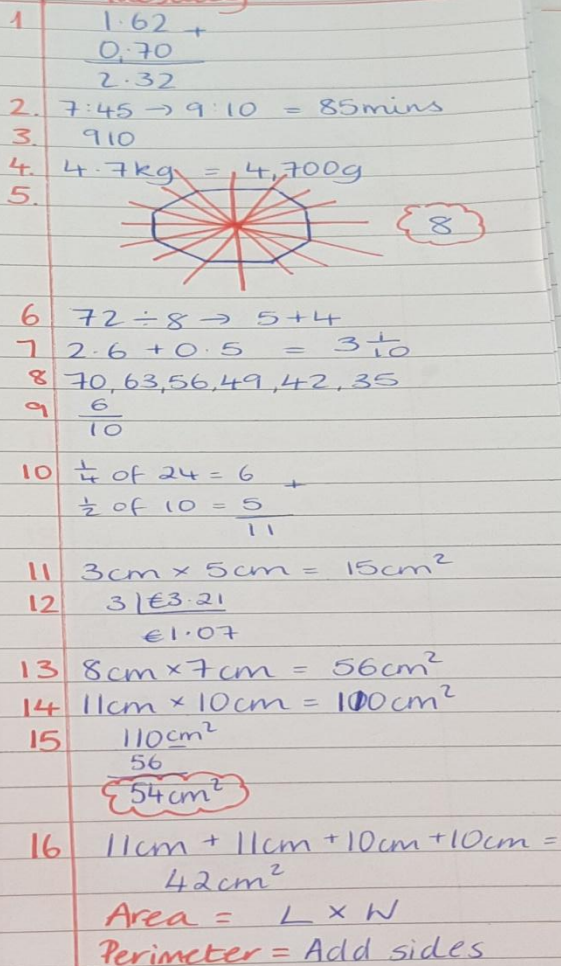 1 1.62 +
0.70
2.32
2. 7:45 → 9:10 = 85mins
3. 910
4. 4.7kg = 4,700g
5. 8
6 72 ÷ 8 → 5+4
7 2.6 + 0.5 = 3 1/10
8 70, 63, 56, 49, 42, 35
9 6/10
10 1/4 of 24 = 6 +
1/2 of 10 = 5
11
11 3cm × 5cm = 15cm²
12 3 | €3.21
€1.07
13 8cm × 7cm = 56cm²
14 11cm × 10cm = 100cm²
15 110cm²
56
54cm²
16 11cm + 11cm + 10cm + 10cm =
42cm²
Area = L × W
Perimeter = Add sides